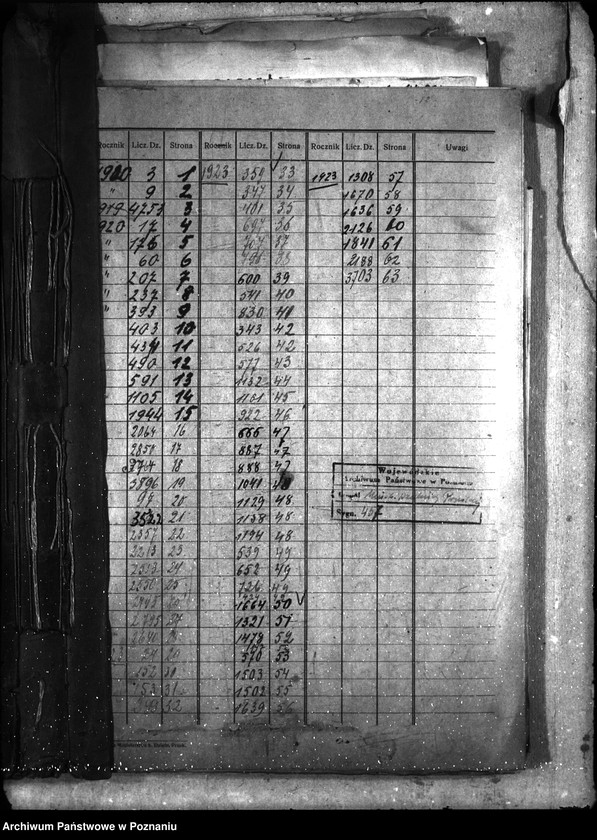 Rocznik Licz. Dz. Strona Rocznik Licz. Dz. Strona Rocznik Licz. Dz. Strona Uwagi
1920 3 1 1923 359 33 1923 1308 57
" 9 2 347 34 1670 58
1919 4253 3 401 35 1636 59
1920 17 4 36 2126 60
" 176 5 37 1841 61
" 60 6 2188 62
" 207 7 600 39 3703 63
" 237 8 541 40
" 393 9 830 41
403 10 343 42
434 11 526 42
490 12 577 43
591 13 1132 44
1105 14 1161 45
1944 15 922 46
2064 16 666 47
2850 17 887 47
18 888 47
3896 19 1041
20 1129 48
3522 21 1138 48
2357 22 1194 48
2213 23 539 49
24 652 49
25 726 49
1664 50
1321 51
1479 52
53
1503 54
31 1502 55
32 1639 56
Wojewódzkie
Archiwum Państwowe w Poznaniu
Sygn. 457
Archiwum Państwowe w Poznaniu